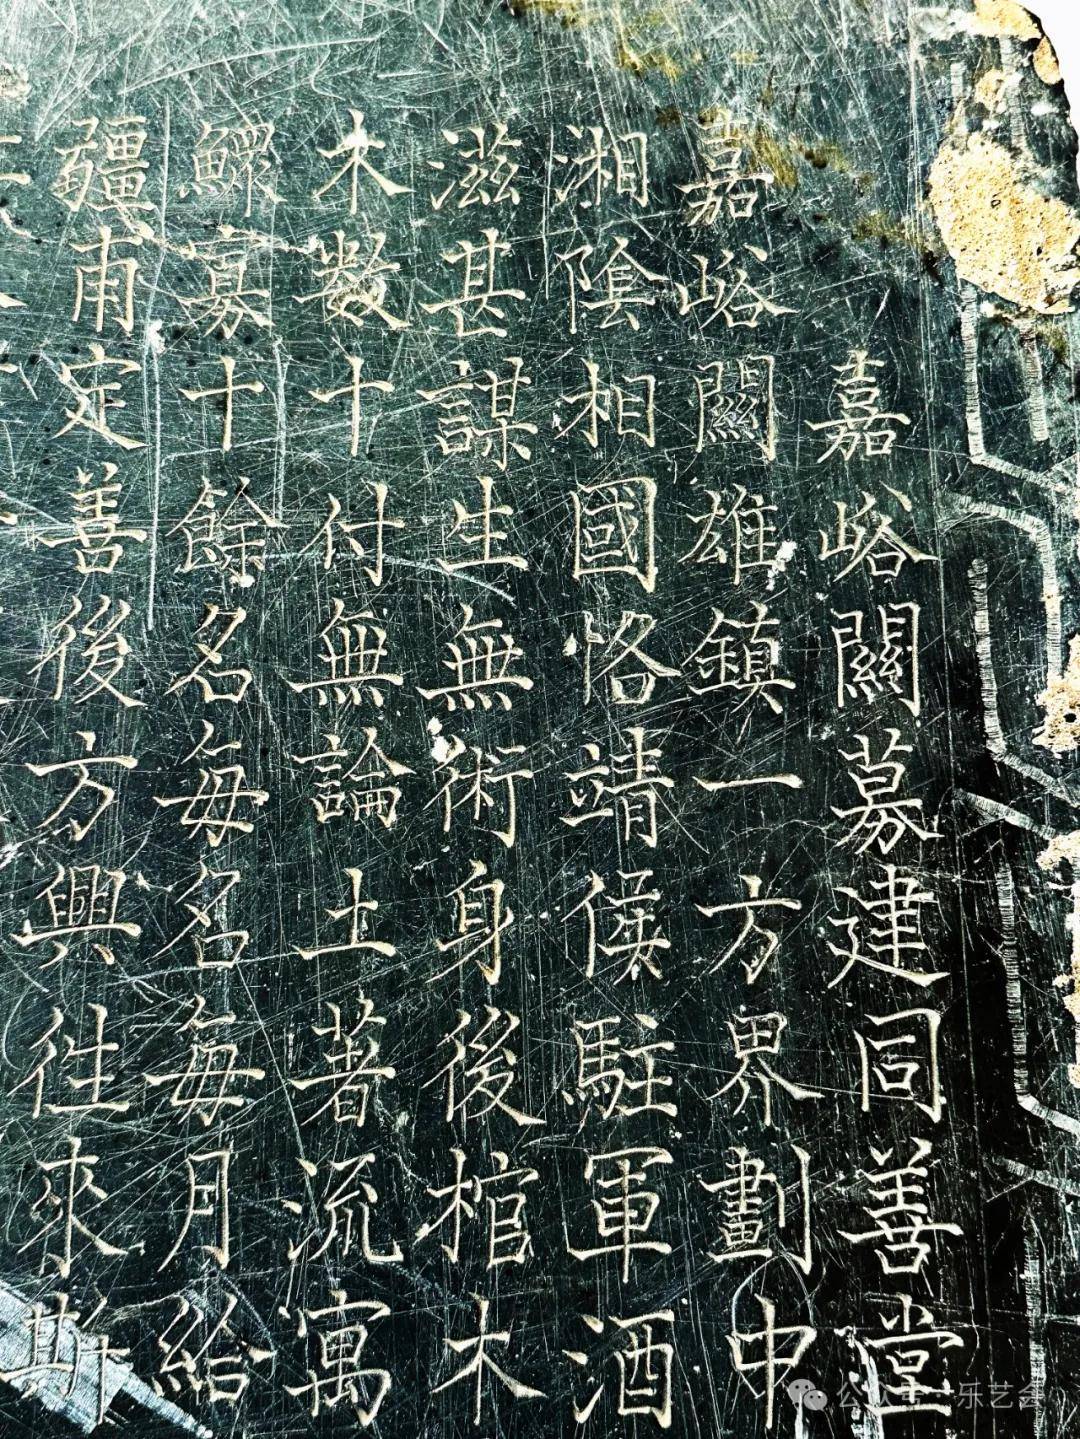 嘉峪關募建同善堂
嘉峪關雄鎮一方界劃中
湘陰相國恪靖侯駐軍酒
滋甚謀生無術身後棺木
木數十付無論土著流寓
鰥寡十餘名每名每月給
疆甫定善後方興往來斯